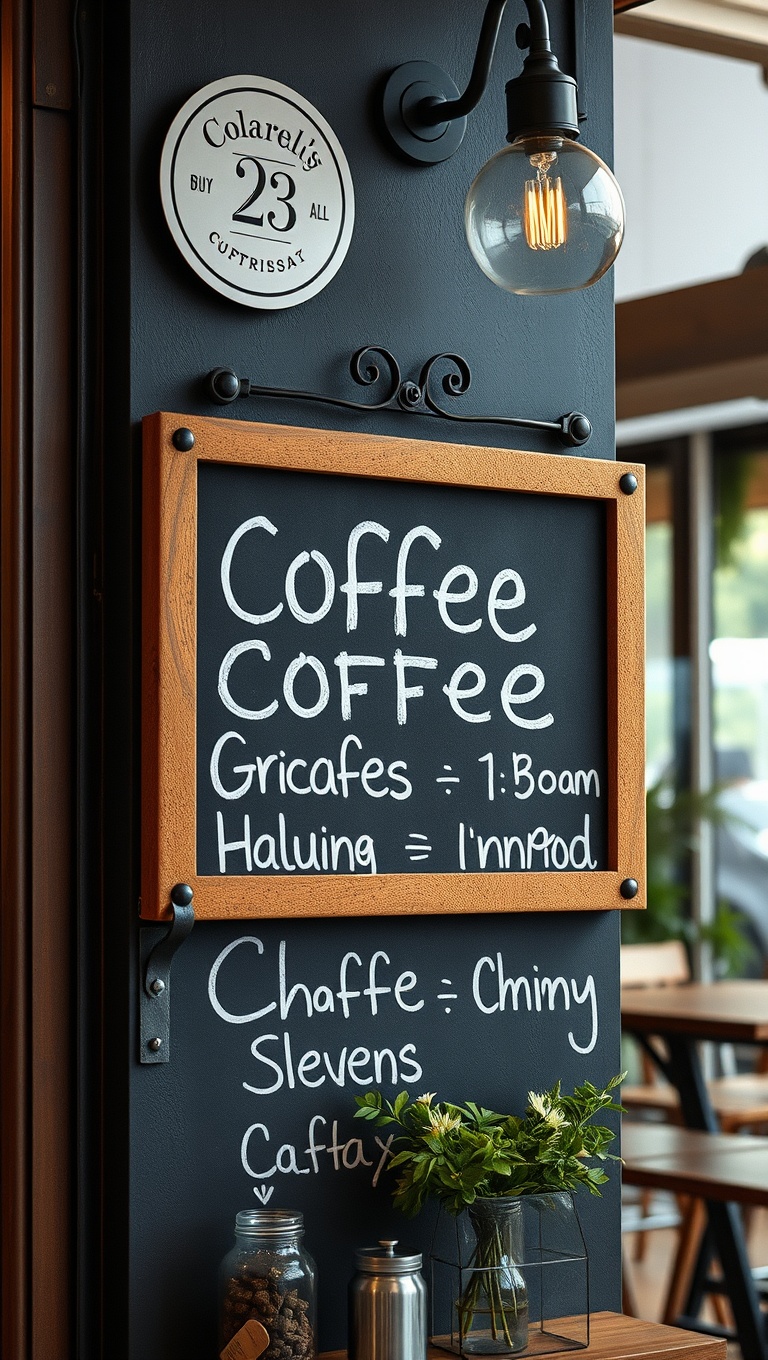 Colarell's
BUY 23 ALL
CUFTRISSAT
Coffee
COFFee
Gricafes ÷ 1:Boam
Haluing
Chaffe ÷ Cmimy
Slevens
Caftay